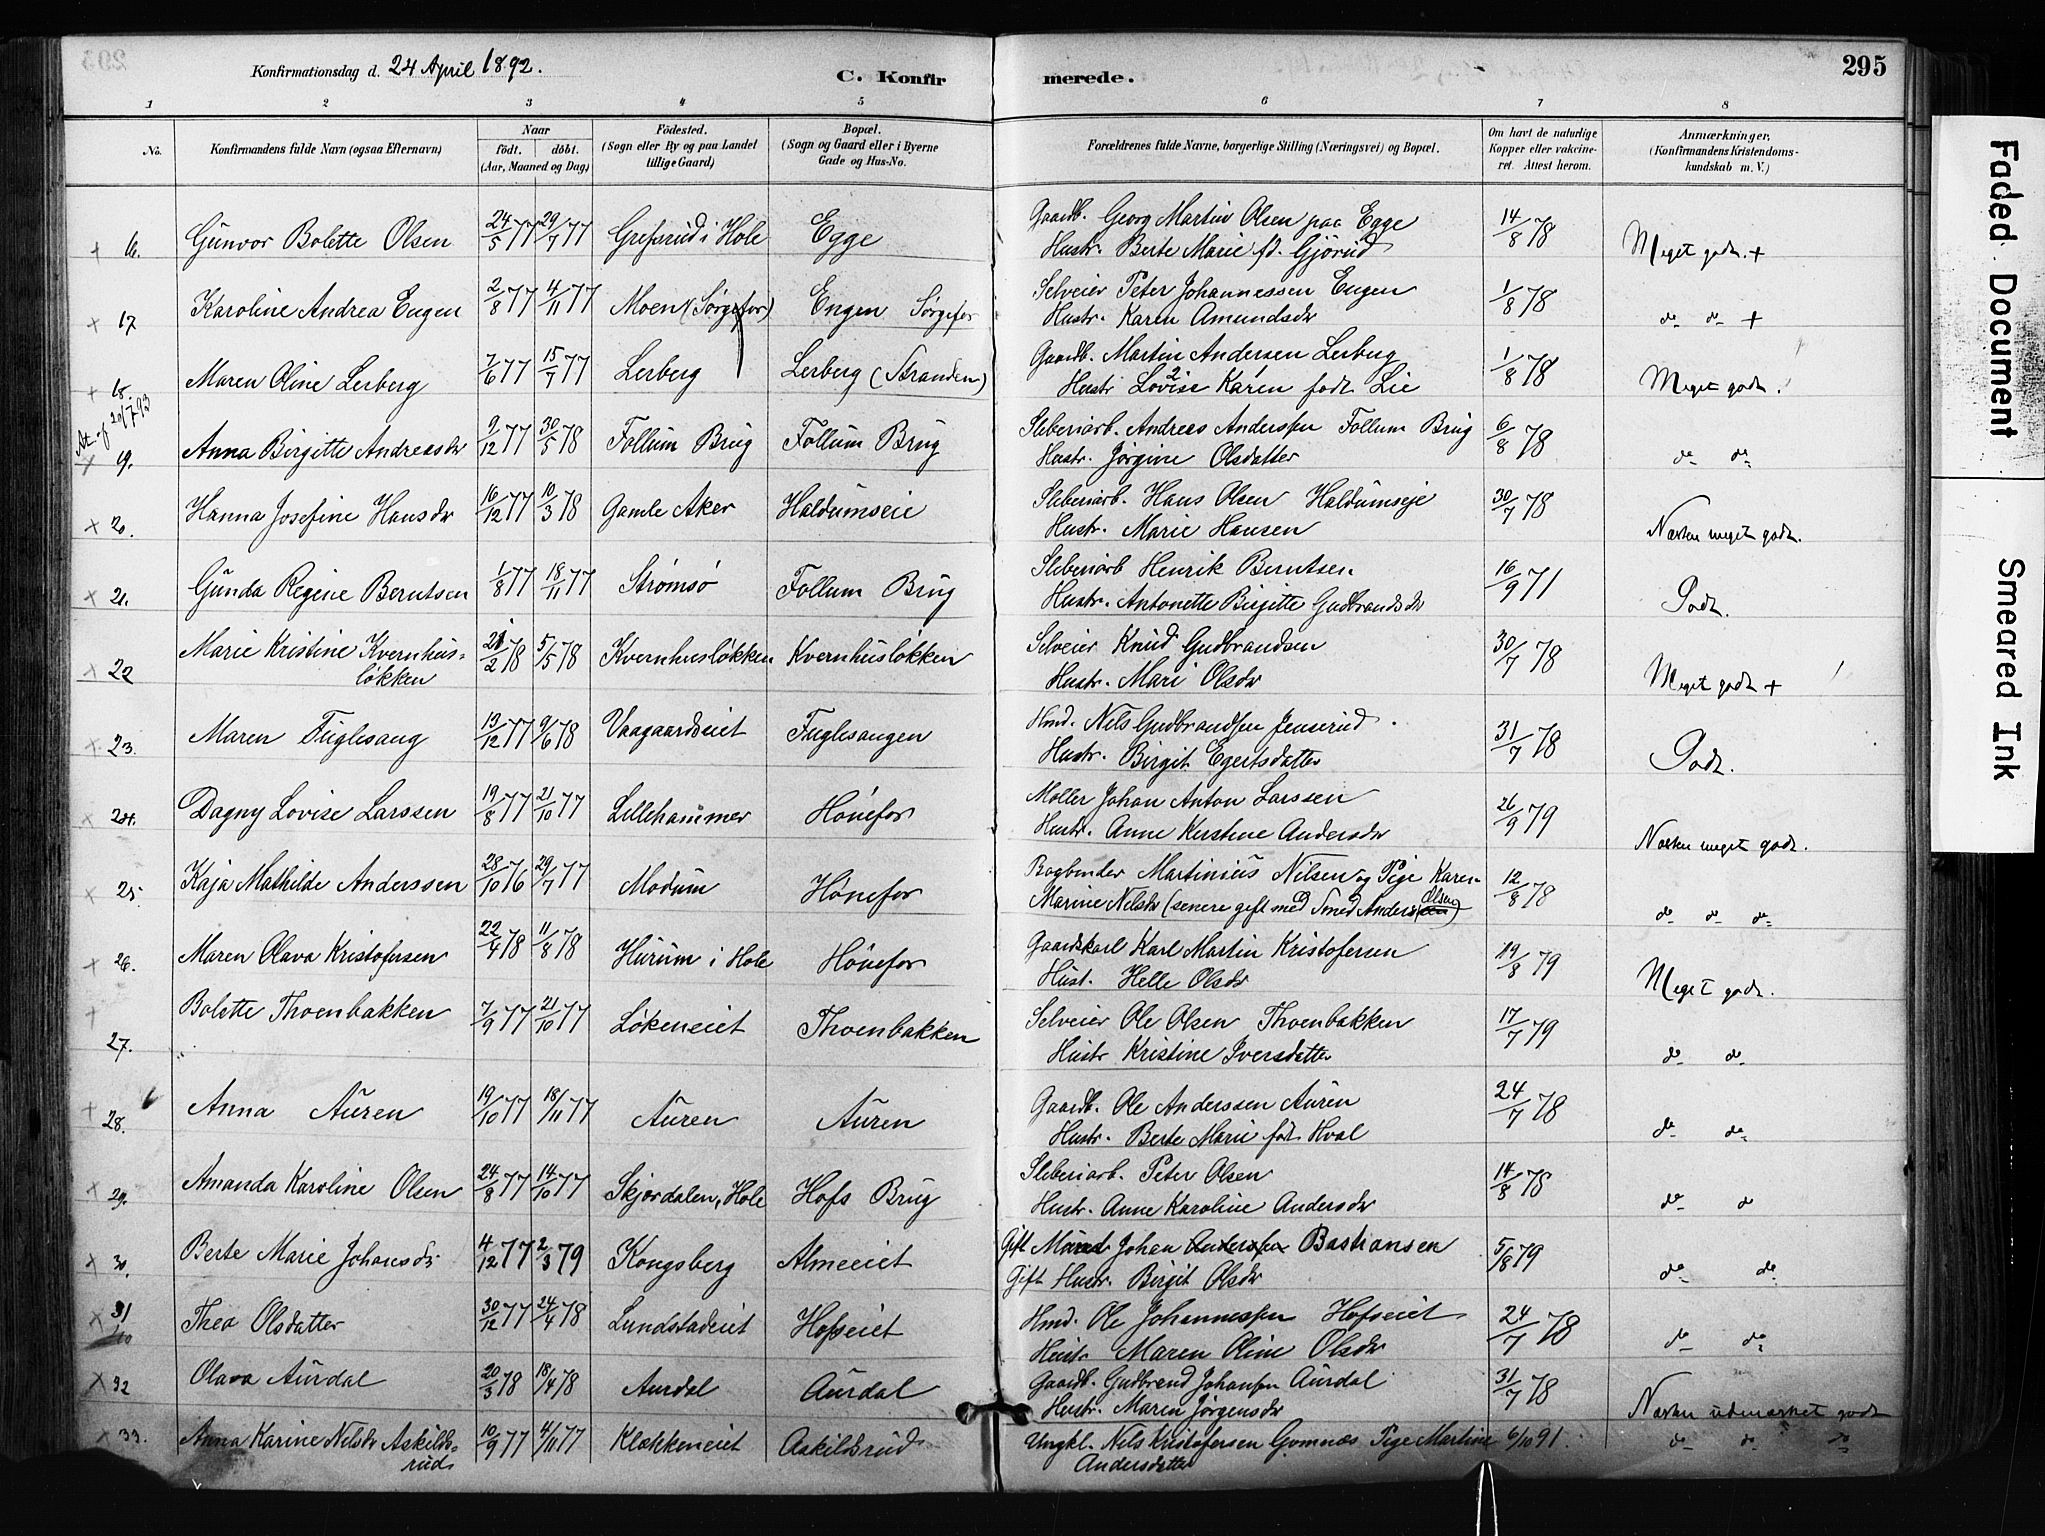 Konfirmationsdag d. 24 April 1892. C. Konfirmerede. 295
1 2 3 4 5 6 7 8
No. Konfirmandens fulde Navn (ogsaa Efternavn) Naar født. døbt. (Aar, Maaned og Dag) Födested. (Sogn eller By og paa Landet tillige Gaard) Bopæl. (Sogn og Gaard eller i Byerne Gade og Hus-No. Forældrenes fulde Navne, borgerlige Stilling (Næringsvei) og Bopæl. Om havt de naturlige Kopper eller vakcineret. Attest herom. Anmærkninger. (Konfirmandens Kristendomskundskab m. V.)
+ 16. Gunvor Bolette Olsen 24/5 77 29/7 77 Grefsrud i Hole Egge Gaardb. Georg Martin Olsen paa Egge 14/8 78 Meget godt. +
Hustr. Berte Marie fd. Gjörud
x 17 Karoline Andrea Engen 2/8 77 4/11 77 Moen (Sørgefos) Engen Sørgefos Selveier Peter Johannessen Engen 1/8 78 do do +
Hustr. Karen Amundsdr
+ 18. Maren Oline Lerberg 7/6 77 15/7 77 Lerberg Lerberg (Stranden) Gaardb. Martin Andersen Lerberg 1/8 78 Meget godt.
Hustr Lovise Karen født Lie
At. af 20/7 93
x 19. Anna Birgitte Andreasdr 9/12 77 30/5 78 Follum Brug Follum Brug Sliberiarb. Andreas Anderssen Follum Brug 6/8 78 do do
Hustr. Jørgine Olsdatter
x 20. Hanna Josefine Hansdr 16/12 77 10/3 78 Gamle Aker Haldumseie Sliberiarb. Hans Olsen Haldumseje 30/7 78 Næsten meget godt.
Hustr. Marie Hansen
x 21. Gunda Regine Berntsen 1/8 77 18/11 77 Strømsø Follum Brug Sliberiarb Henrik Berntsen 16/9 71 Godt.
Hustr. Antonette Birgitte Gudbrandsdr
x 22 Marie Kristine Kvernhusløkken 21/2 78 5/5 78 Kvernhusløkken Kvernhusløkken Selveier Knud Gudbrandsen 30/7 78 Meget godt +
Hustr. Mari Olsdr
x 23. Maren Fuglesang 13/12 77 9/6 78 Vaagaardseiet Fuglesangen Hmd. Nels Gudbrandsen Jenserud 31/7 78 Godt.
Hustr. Birgit Egertsdatter
x 24. Dagny Lovise Larssen 19/8 77 21/10 77 Lillehammer Hönefos Møller Johan Anton Larssen 26/9 79 Næsten meget godt.
Hustr. Anne Kirstine Andersdr
x 25. Kaja Mathilde Anderssen 28/10 76 29/7 77 Modum Hönefos Bogbinder Martinius Nilsen og Pige Karen 12/8 78 do do do
Marine Nelsdr (senere gift med Smed Anders Olsen)
x 26. Maren Olava Kristofersen 22/4 78 11/8 78 Hurum i Hole Hönefos Gaardskarl Karl Martin Kristofersen 19/8 79 Meget godt.
Hust. Helle Olsdr
+ 27. Bolette Thoenbakken 7/9 77 21/10 77 Løkeneiet Thoenbakken Selveier Ole Olsen Thoenbakken 17/7 79 do do
Hustr Kristine Iversdatter
+ 28. Anna Auren 19/10 77 18/11 77 Auren Auren Gaardb. Ole Anderssen Auren 24/7 78 do do
Hustr. Berte Marie født Hval
x 29. Amanda Karoline Olsen 24/8 77 14/10 77 Skjørdalen, Hole Hofs Brug Sliberiarb. Peter Olsen 14/8 78 do do
Hustr. Anne Karoline Andersdr
x 30. Berte Marie Johansdr 4/12 77 2/3 79 Kongsberg Almeeiet Gift Mand Johan Andersen Bastiansen 5/8 79 do do
Gift Hustr. Birgit Olsdr
x 31 Thea Olsdatter 30/12 77 24/4 78 Lundstadeiet Hofseiet Hmd. Ole Johannessen Hofseiet 24/7 78 do do
Hustr Maren Oline Olsdr
x 32 Olava Aurdal 20/3 78 18/4 78 Aurdal Aurdal Gaardb. Gudbrand Johansen Aurdal 31/7 78 Næsten udmærket godt
Hustr. Maren Jørgensdr
x 33. Anna Karine Nelsdr Askildsrud 10/9 77 4/11 77 Klækkeneiet Askildsrud Ungkl. Nels Kristofersen Gomnæs Pige Martine 6/10 91. do do do
Andersdatter
Faded Document
Smeared Ink